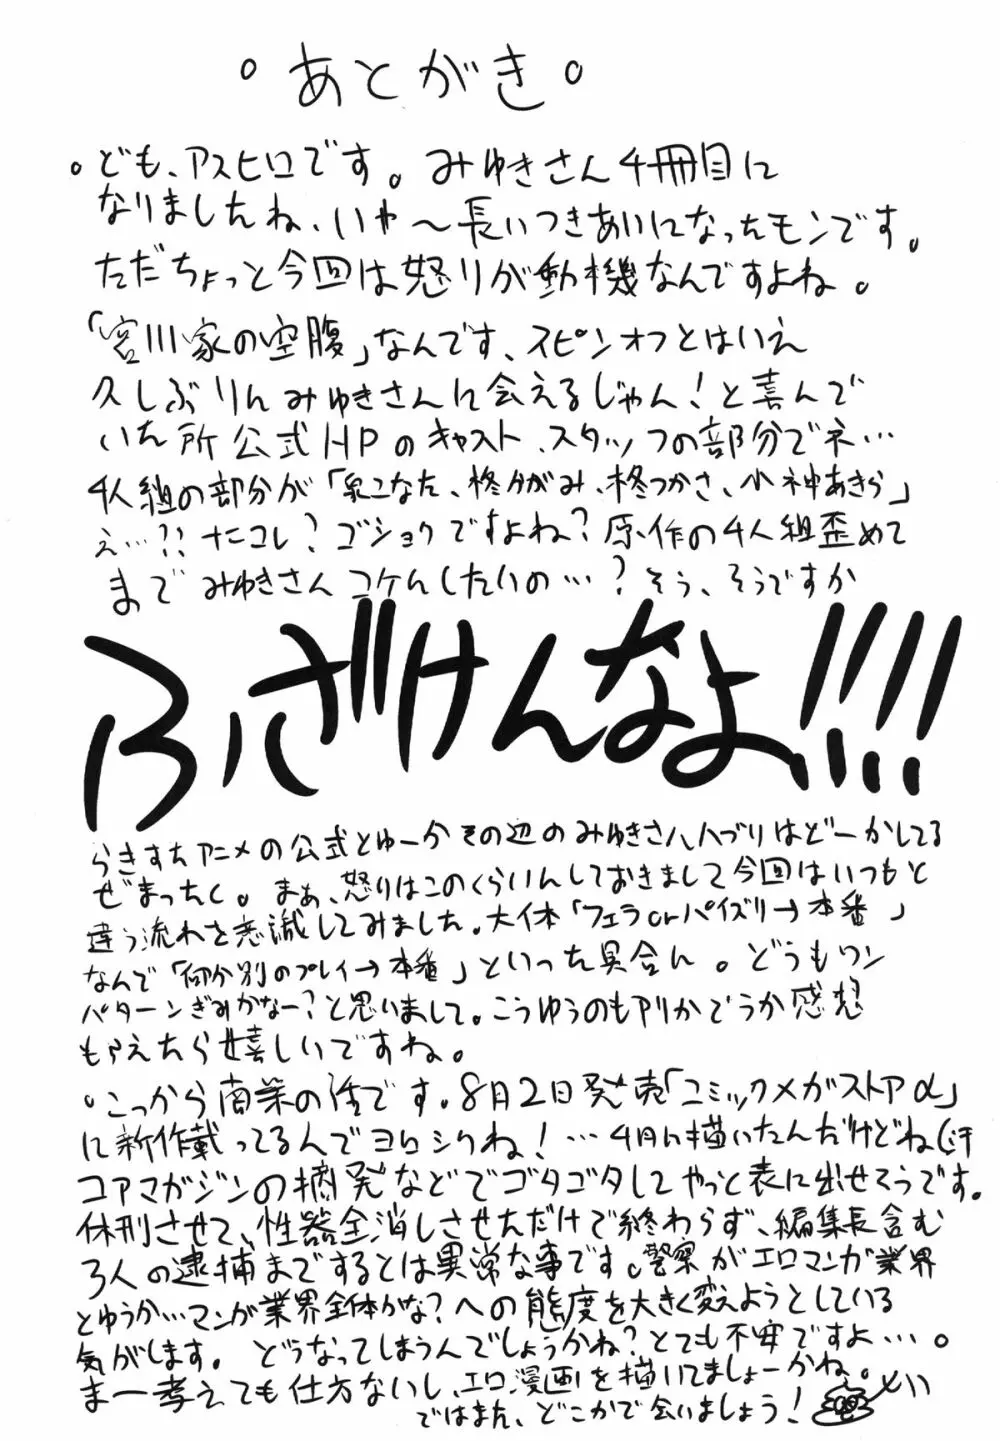 。あとがき。
。ども、アスヒロです。みゆきさん4冊目に
なりましたね、いや〜長いつきあいになったモンです。
ただちょっと今回は怒りが動機なんですよね。
「宮川家の空腹」なんです、スピンオフとはいえ
久しぶりにみゆきさんに会えるじゃん!と喜んで
いた所公式HPのキャスト、スタッフの部分でネ…
4人組の部分が「泉こなた、柊かがみ、柊つかさ、小神あきら」
え…!?ナニコレ?ゴショクですよね?原作の4人組歪めて
までみゆきさんコケにしたいの…?そう、そうですか
ふざけんなよ!!!!
らきすたアニメの公式とゆーかその辺のみゆきさんハブりはどーかしてる
ぜまったく。まぁ、怒りはこのくらいにしておきまして今回はいつもと
違う流れを意識してみました。大体「フェラorパイズリ→本番」
なんで「何か別のプレイ→本番」といった具合に。どうもワン
パターンぎみかなー?と思いまして。こうゆうのもアリかどうか感想
もらえたら嬉しいですね。
。こっから商業の話です。8月2日発売「コミックメガストアα」
に新作載ってるんでヨロシクね!…4月に描いたんだけどね(汗
コアマガジンの摘発などでゴタゴタしてやっと表に出せそうです。
休刊させて、性器全消しさせただけで終わらず、編集長含む
3人の逮捕までするとは異常な事です。警察がエロマンガ業界
とゆうか…マンガ業界全体がな?への態度を大きく変えようとしている
気がします。どうなってしまうんでしょうかね?とても不安ですよ…。
まー考えても仕方ないし、エロ漫画を描いてましょーかね。
ではまた、どこかで会いましょう!